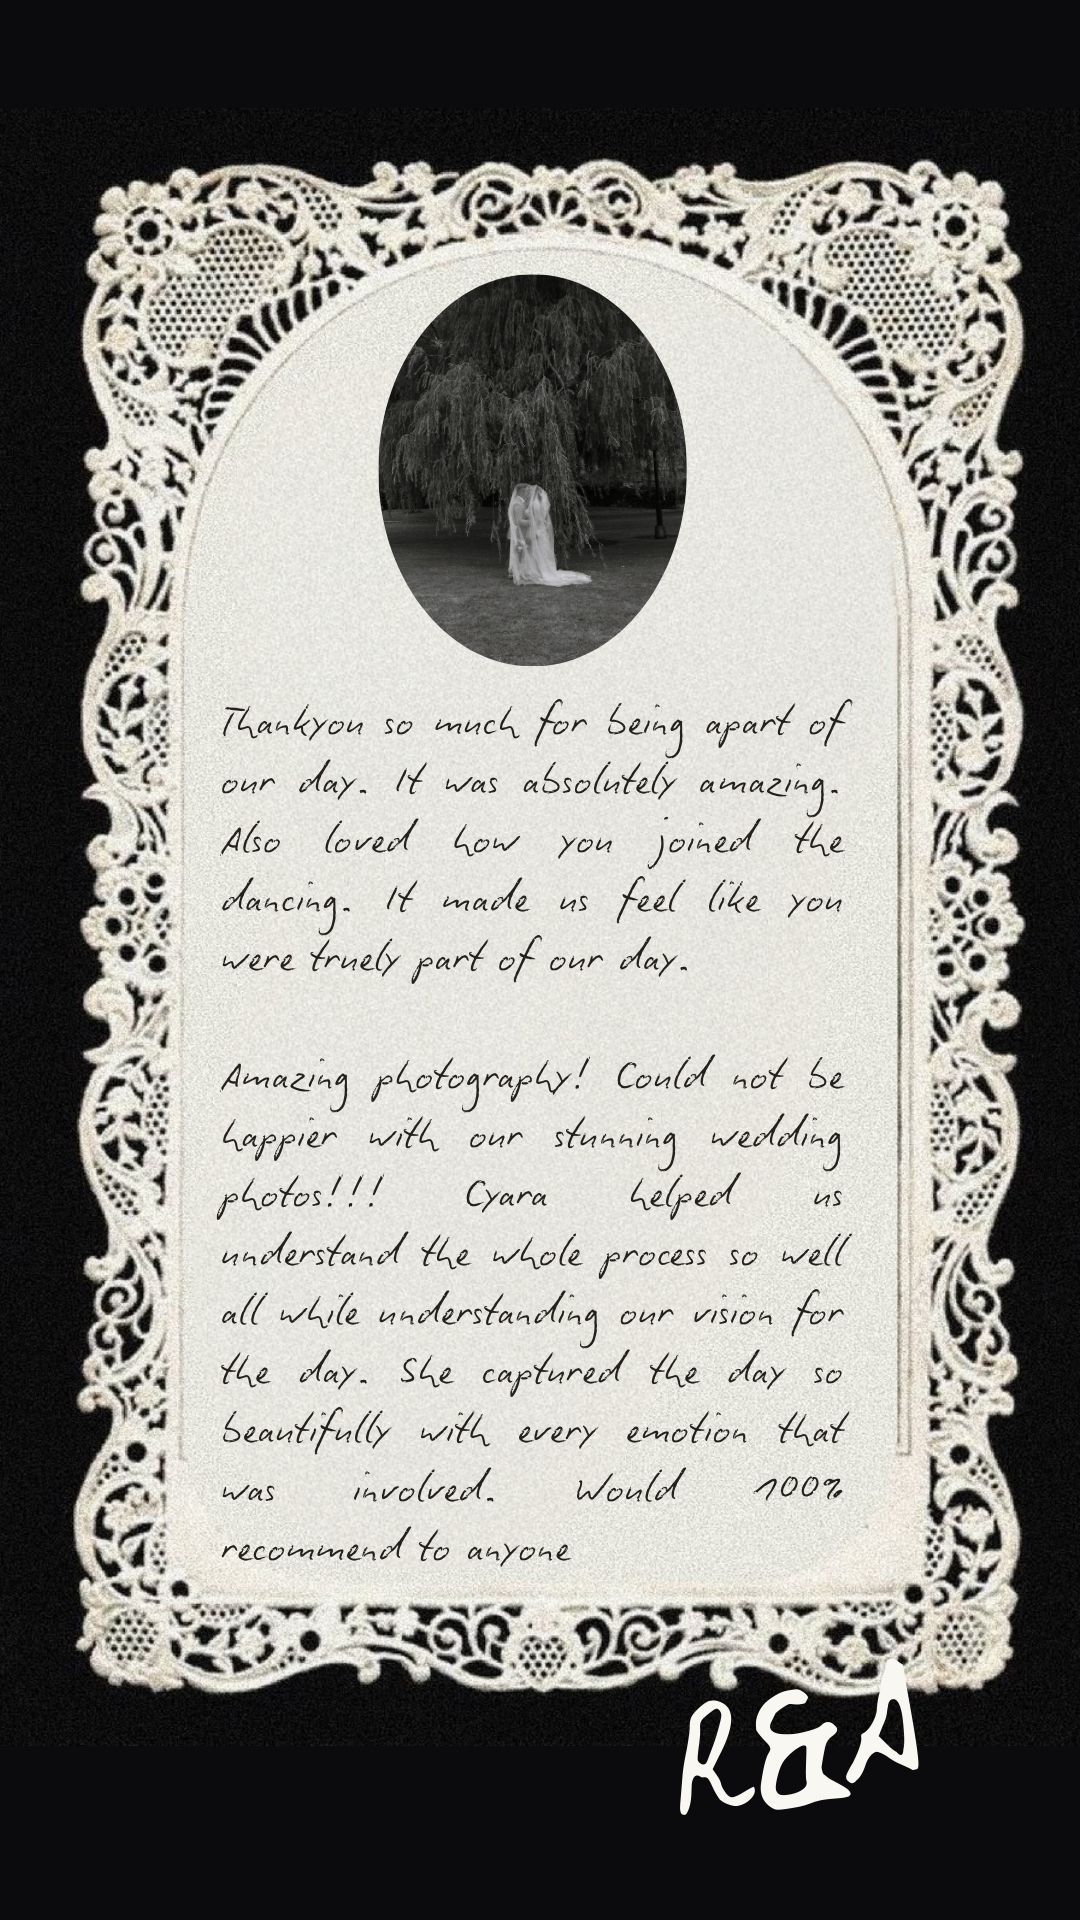 Thankyou so much for being apart of
our day. It was absolutely amazing.
Also loved how you joined the
dancing. It made us feel like you
were truely part of our day.
Amazing photography! Could not be
happier with our stunning wedding
photos!!! Cyara helped us
understand the whole process so well
all while understanding our vision for
the day. She captured the day so
beautifully with every emotion that
was involved. Would 100%
recommend to anyone
R&A